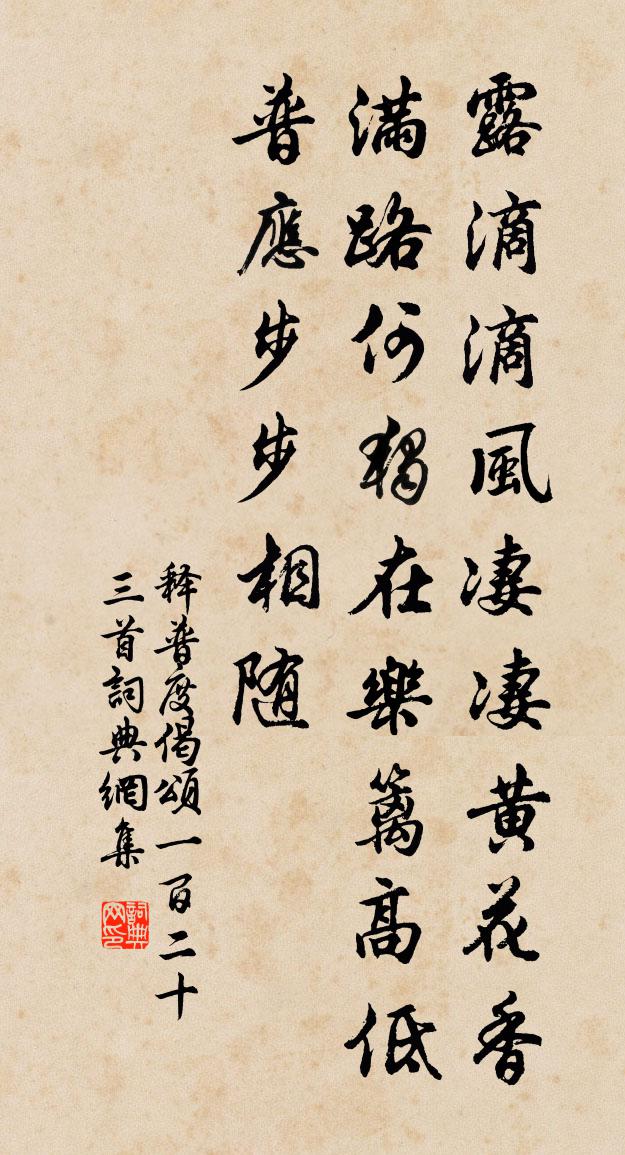 露滴滴風凄凄黄花香
滿路何獨在樂籬高低
普應步步相随
释普度偈頌一百二十
三首詞典網集
詞典网印